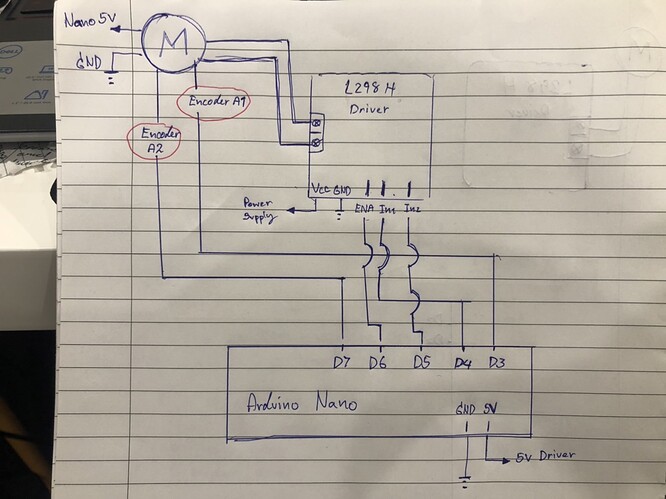 Nano 5V
M
GND
Encoder A1
Encoder
A2
L298H
Driver
Vcc GND
Power
Supply
ENA In1 In2
D7 D6 D5 D4 D3
Arduino Nano
GND 5V
5V Driver
DELL